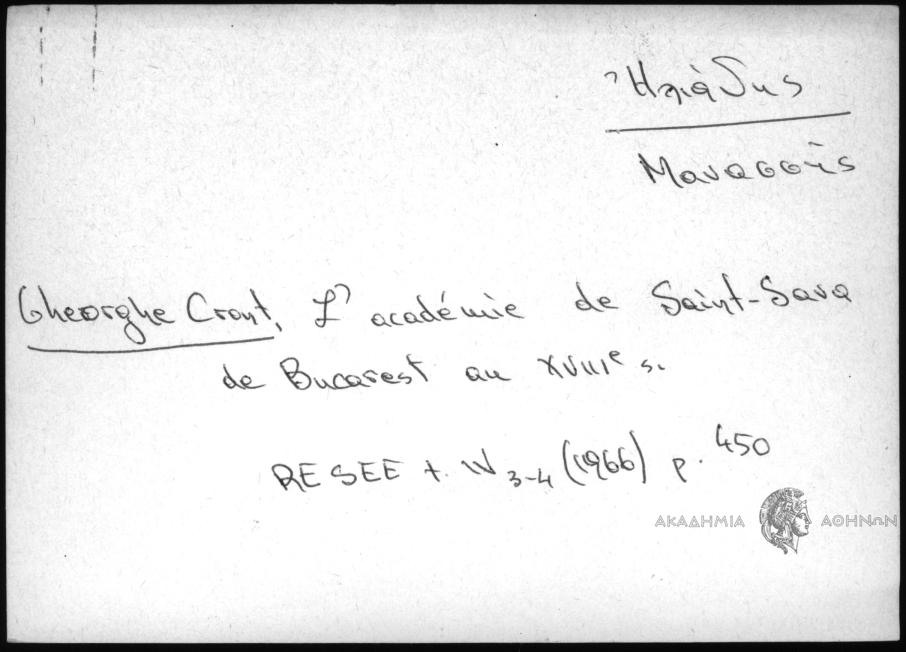 Ἠλιάδης
Μανασσῆς
Gheorghe Cront, L'académie de Saint-Sava
de Bucarest au XVIIIe s.
RESEE t. IV 3-4 (1966) p. 450
ΑΚΑΔΗΜΙΑ ΑΘΗΝΩΝ